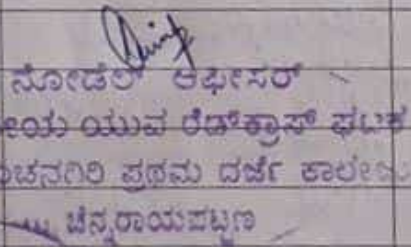 ನೋಡೆಲ್ ಆಫೀಸರ್
ಯುವ ರೆಡ್‌ಕ್ರಾಸ್ ಘಟಕ
ಪ್ರಥಮ ದರ್ಜೆ ಕಾಲೇಜು
ಚೆನ್ನರಾಯಪಟ್ಟಣ